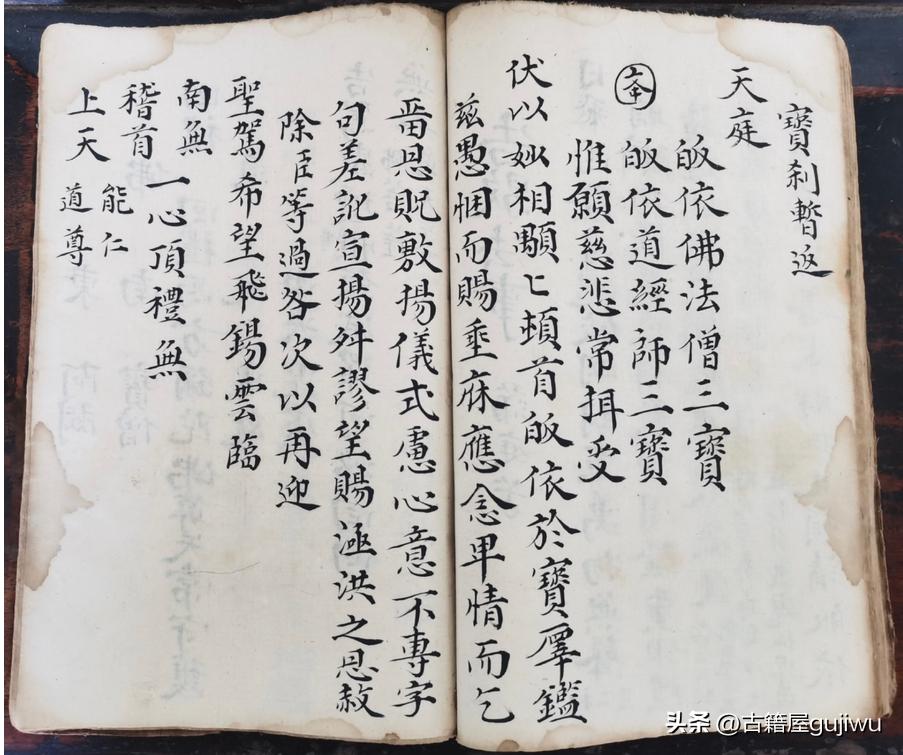 寶刹暫返
天庭
皈依佛法僧三寶
夲
皈依道經師三寶
惟願慈悲常挕受
伏以妙相顒匕頓首皈依於寶座鑑
兹愚悃而賜垂庥應念卑情而乞
畨恩貺敷揚儀式慮心意不專字
句差訛宣揚舛謬望賜洪之恩赦
除臣等過咎次以再迎
聖駕希望飛錫雲臨
南無
稽首
一心頂禮無
上天
能仁
道尊
头条 @古籍屋gujiwu